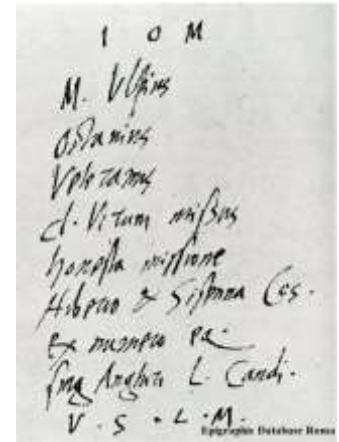 I O M
M. Ulpius
Octavius
Veteranus
missus
honesta missione
Hibero & Sisenna Cos.
ex numero eq.
sing Anglari L. Candi.
V. S. L. M.
Epigraphic Database Roma